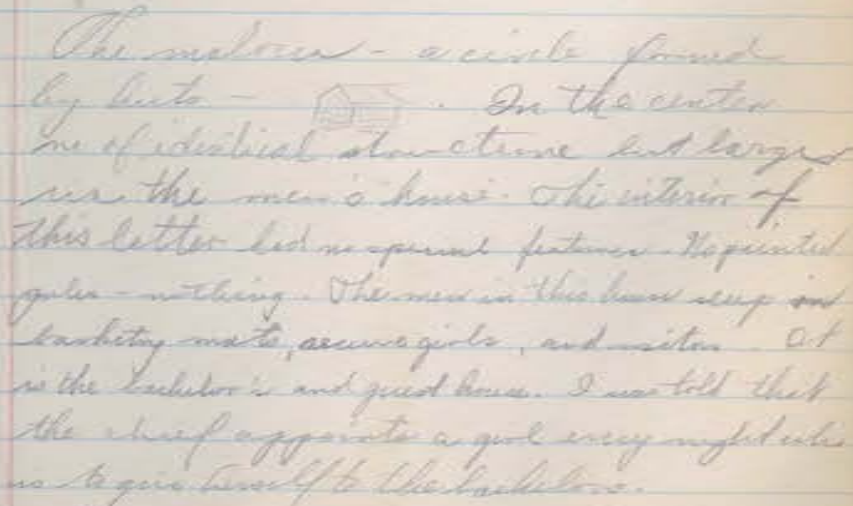 The maloca - a circle formed
by huts - . In the center
one of identical structure but larger
was the men's house. The interior of
this latter had no special features. No painted
poles - nothing. The men in this house sleep on
basketry mats, and visitors. It
is the bachelor's and guest house. I was told that
the chief appoints a girl every night who
is to give herself to the bachelors.